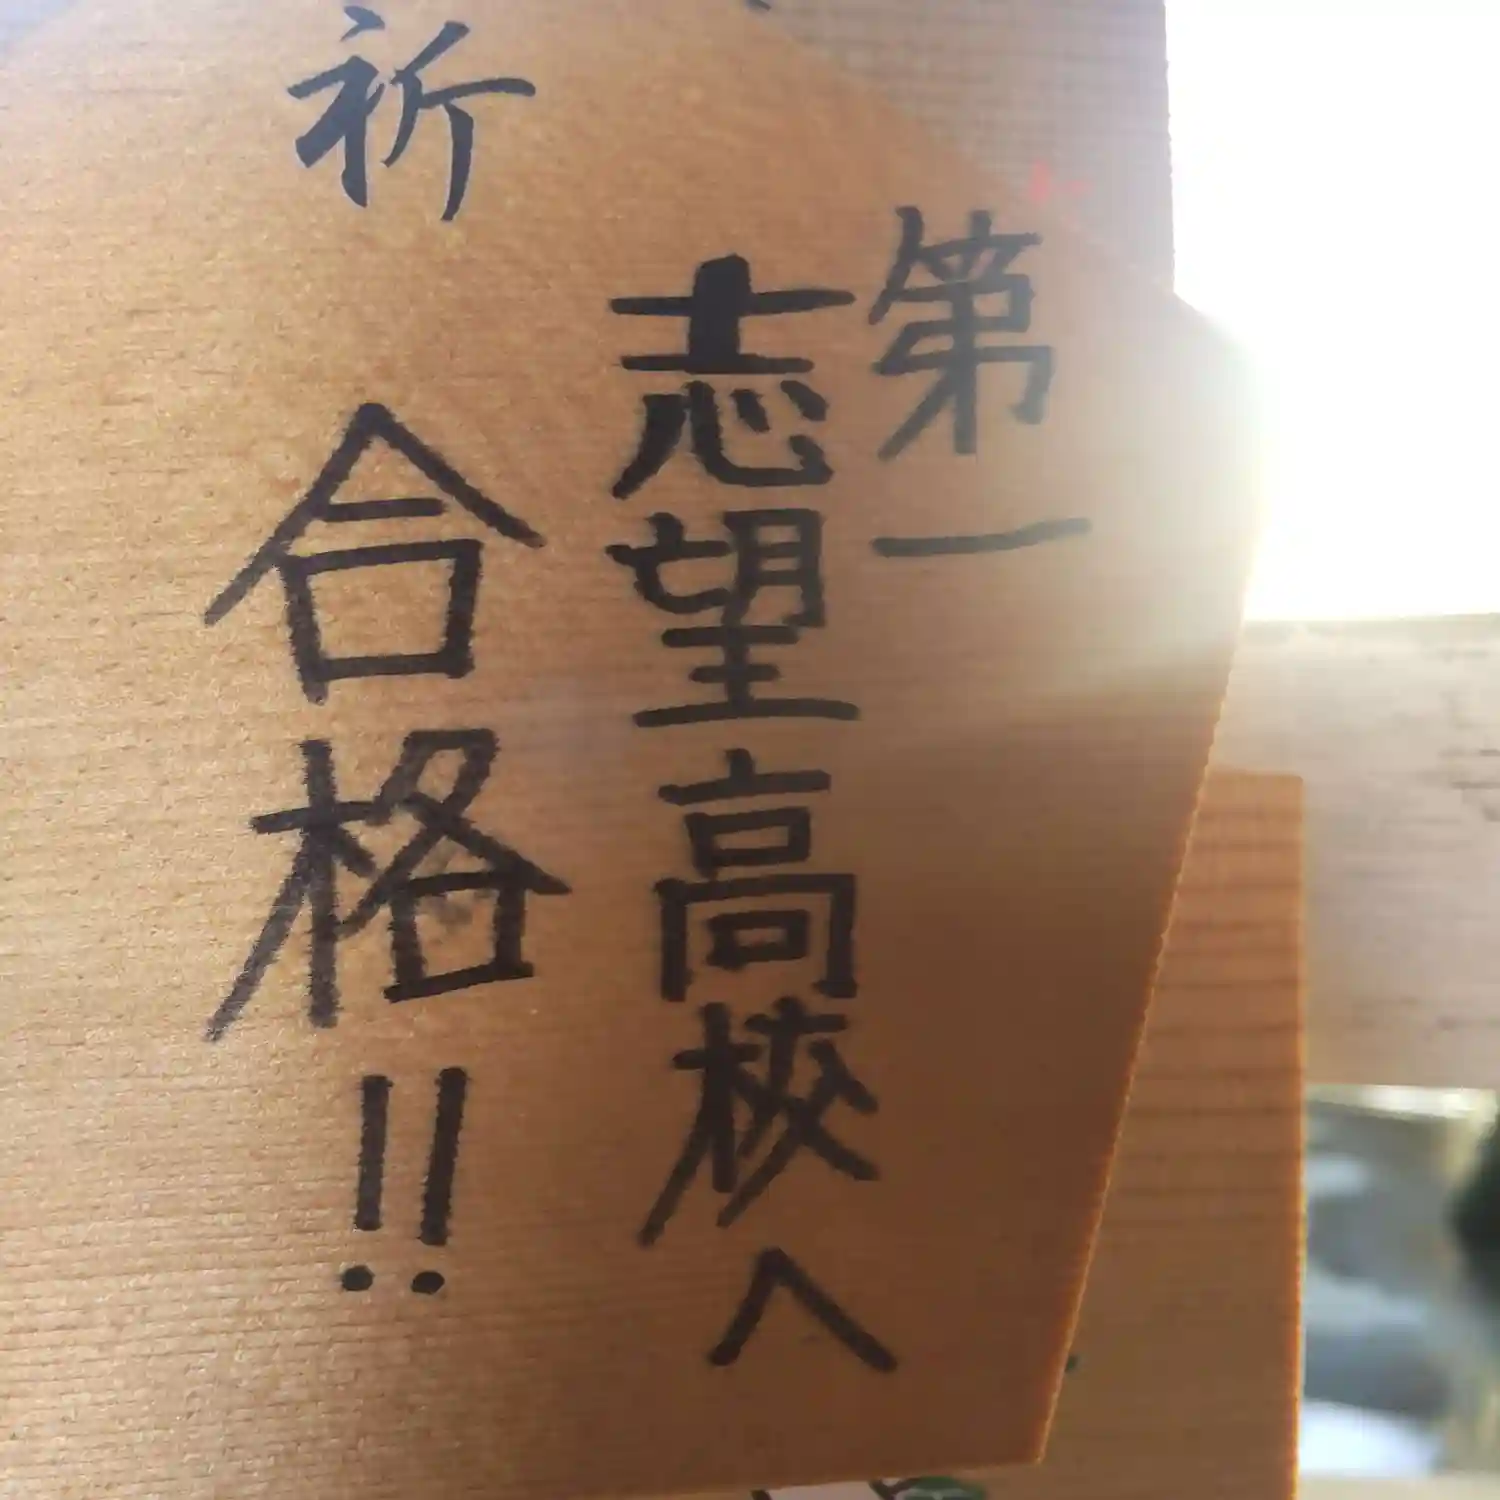 祈
第一
志望高校へ
合格!!